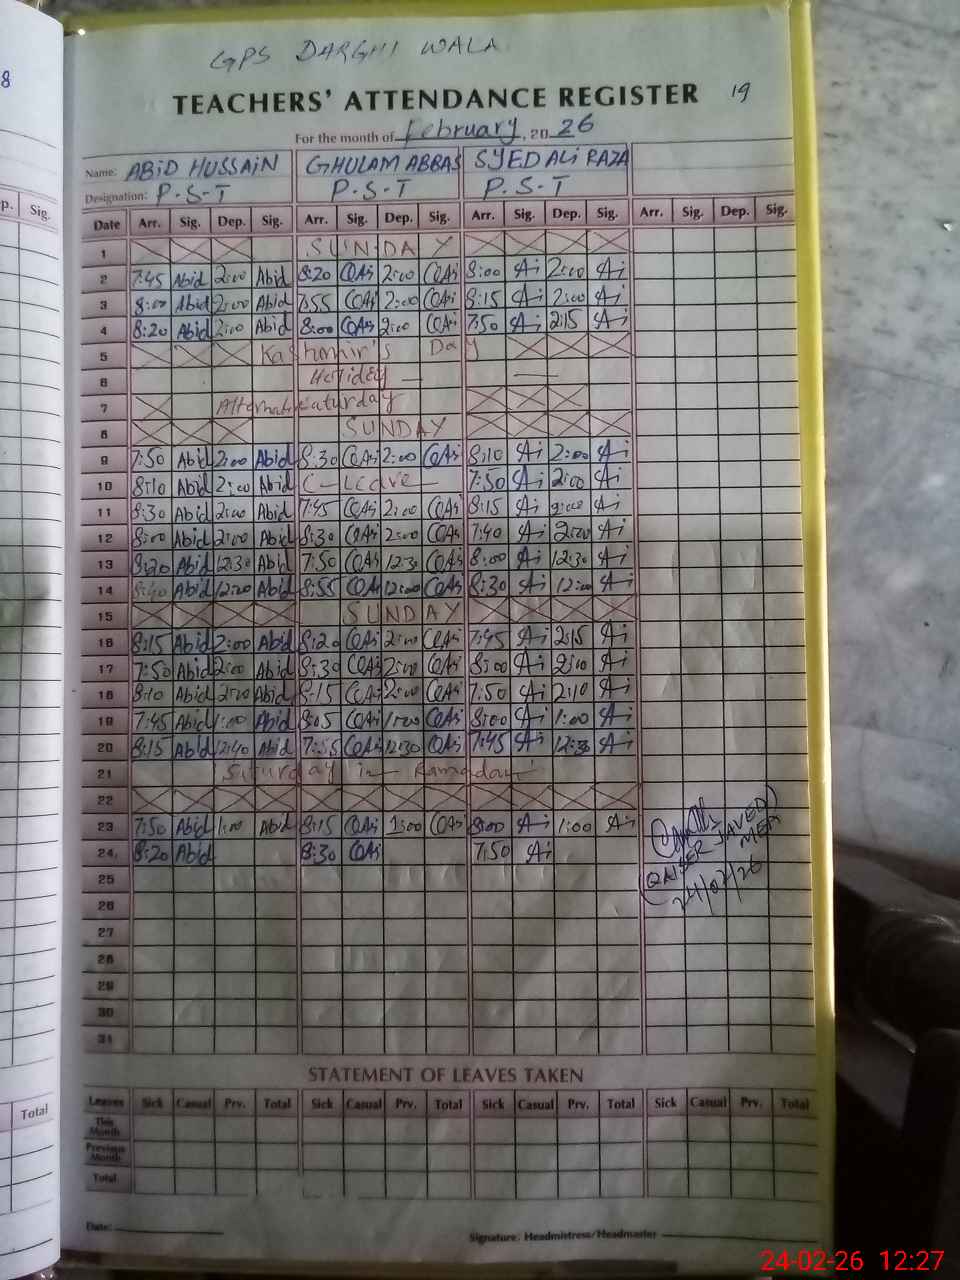 8
GPS DARGHI WALA
TEACHERS' ATTENDANCE REGISTER 19
For the month of February, 20 26
Name: ABID HUSSAIN GHULAM ABBAS SYED ALI RAZA
Designation: P.S.T P.S.T P.S.T
p. Sig.
Date Arr. Sig. Dep. Sig. Arr. Sig. Dep. Sig. Arr. Sig. Dep. Sig. Arr. Sig. Dep. Sig.
1 SUNDAY
2 7:45 Abid 2:00 Abid 8:20 2:00 8:00 2:00
3 8:00 Abid 2:00 Abid 7:55 2:00 8:15 2:00
4 8:20 Abid 2:00 Abid 8:00 2:00 7:50 2:15
5 Kashmir's Day
6 Holiday
7 Saturday
8 SUNDAY
9 7:50 Abid 2:00 Abid 8:30 2:00 8:10 2:00
10 8:10 Abid 2:00 Abid C-Leave 7:50 2:00
11 8:30 Abid 2:00 Abid 7:45 2:00 8:15 2:00
12 8:00 Abid 2:00 Abid 8:30 2:00 7:40 2:00
13 8:20 Abid 12:30 Abid 7:50 12:30 8:00 12:30
14 Abid 12:00 Abid 8:55 12:00 8:30 12:00
15 SUNDAY
16 8:15 Abid 2:00 Abid 8:20 2:00 7:45 2:15
17 7:50 Abid 2:00 Abid 8:30 2:00 8:00 2:00
18 8:10 Abid 2:00 Abid 8:15 2:00 7:50 2:10
19 7:45 Abid 1:00 Abid 8:05 1:00 8:00 1:00
20 8:15 Abid 12:40 Abid 7:55 12:30 7:45 12:30
21 Saturday in Ramadan
22
23 7:50 Abid 1:00 Abid 8:15 1:00 8:00 1:00
24 8:20 Abid 8:30 7:50
(QAISER JAVED)
MEA
24/02/26
25
26
27
28
29
30
31
STATEMENT OF LEAVES TAKEN
Leaves Sick Casual Prv. Total Sick Casual Prv. Total Sick Casual Prv. Total Sick Casual Prv. Total
Total
This Month
Previous Month
Total
Date:
Signature. Headmistress/Headmaster
24-02-26 12:27